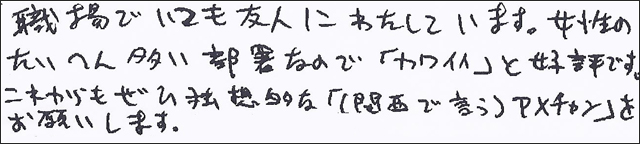 職場でいつも友人にわたしています。女性の
たいへん多い部署なので「カワイイ」と好評です。
これからもぜひ独想的な「(関西で言う)アメチャン」を
お願いします。